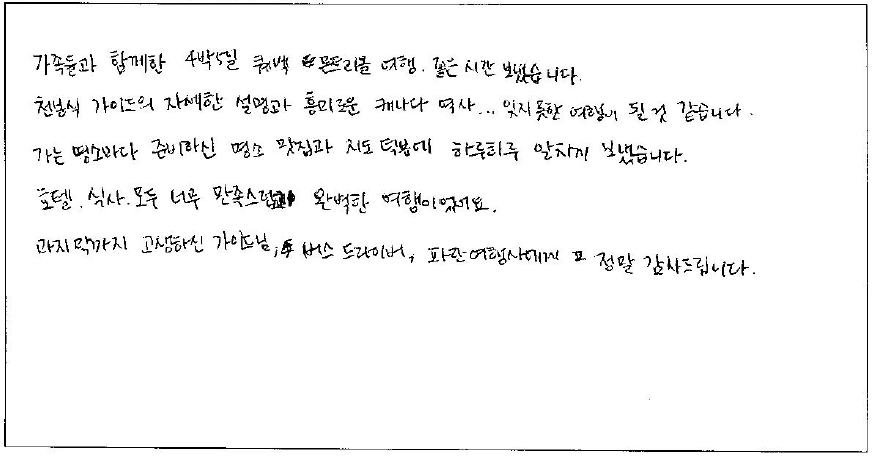 가족들과 함께한 4박5일 퀘백 몬트리올 여행. 좋은 시간 보냈습니다.
천봉식 가이드의 자세한 설명과 흥미로운 캐나다 역사... 잊지못할 여행이 될 것 같습니다.
가는 명소마다 준비하신 명소 맛집과 지도 덕분에 하루하루 알차게 보냈습니다.
호텔. 식사. 모두 너무 만족스럽 완벽한 여행이었어요.
마지막까지 고생하신 가이드님, 버스 드라이버, 파란여행사에게 정말 감사드립니다.